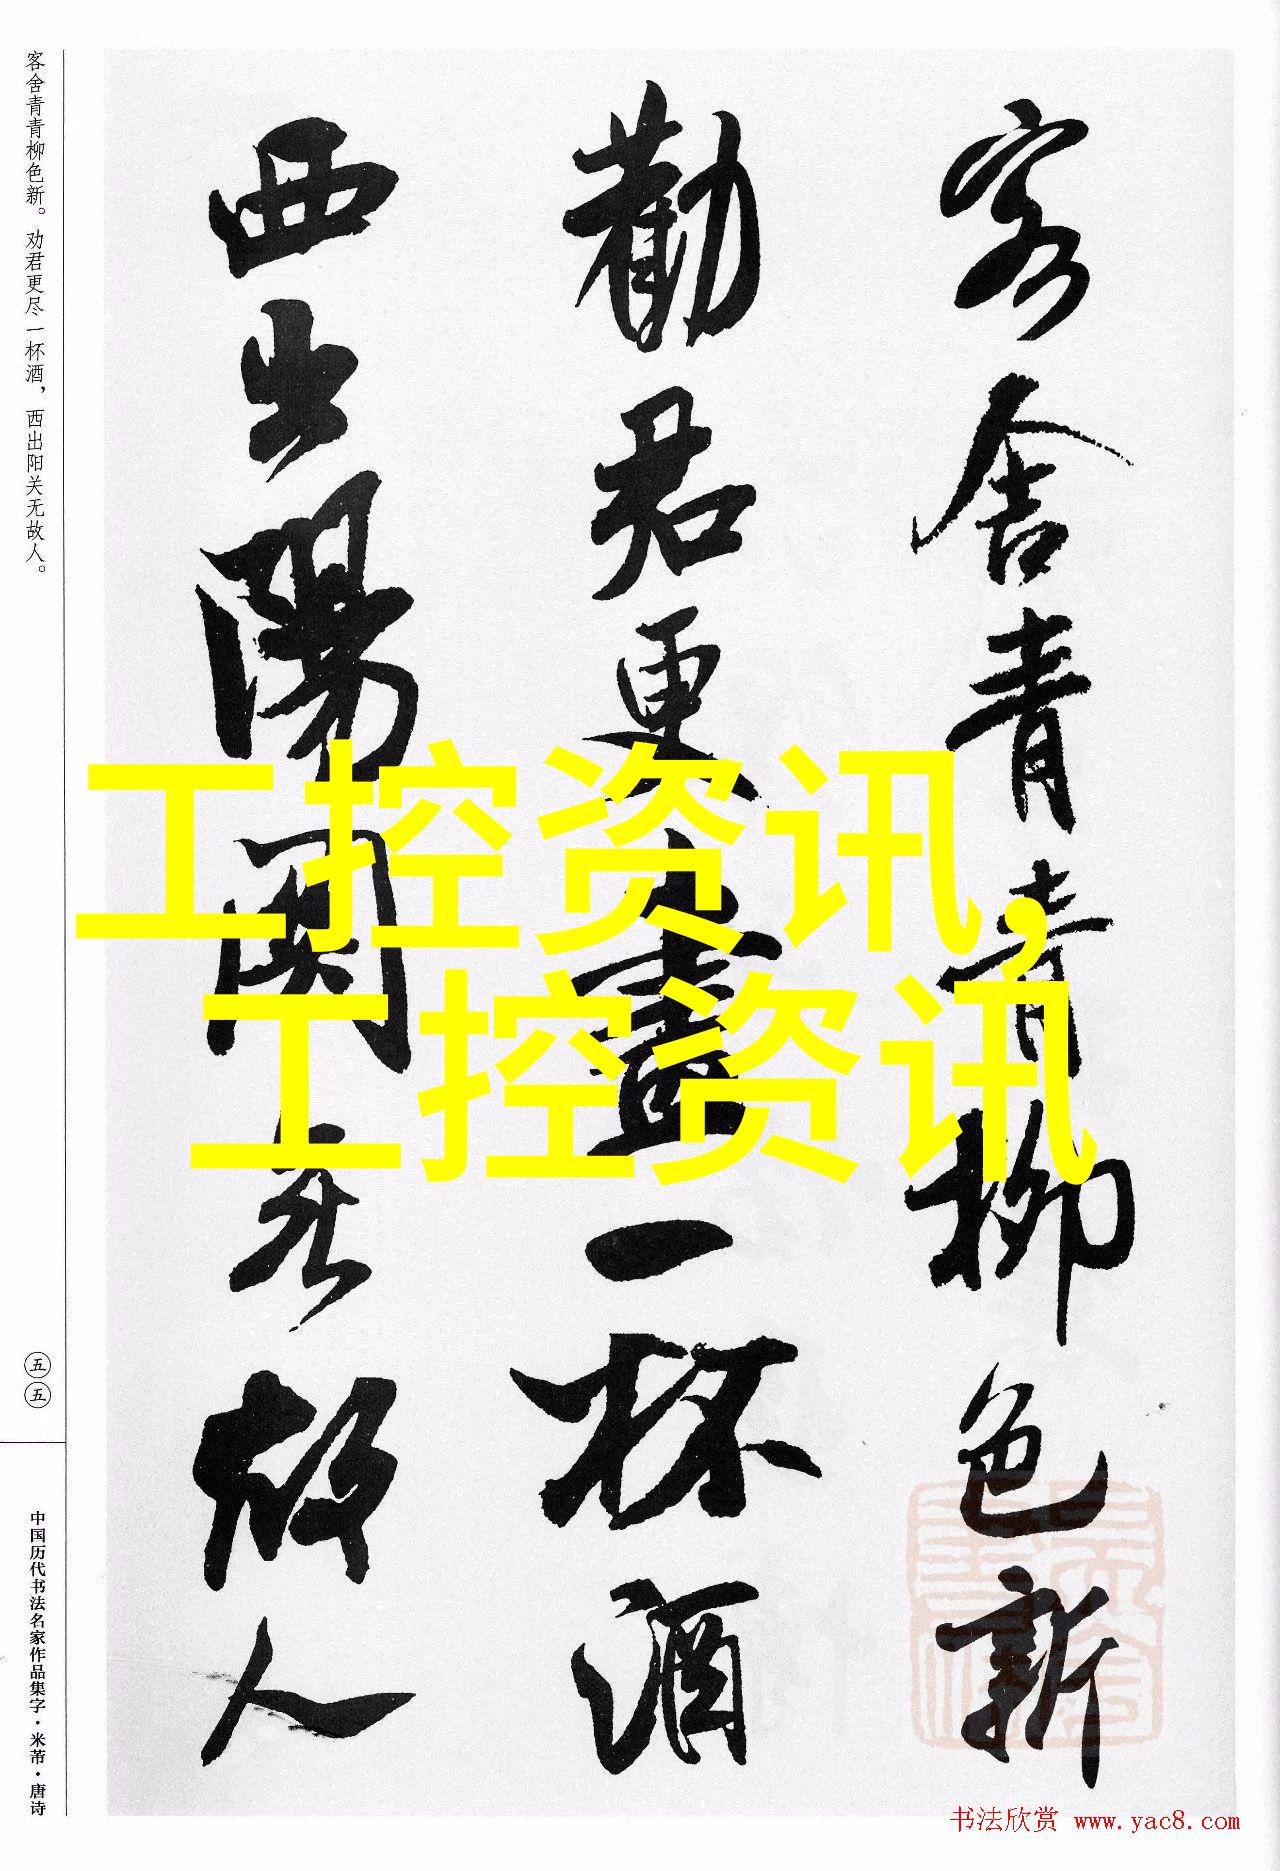 客舍青青柳色新
勸君更盡一杯酒
西出陽関无故人
客舍青青柳色新。劝君更尽一杯酒，西出阳关无故人。
五五
中国历代书法名家作品集字·米芾·唐诗
工控资讯，
工控资讯
书法欣赏 www.yac8.com